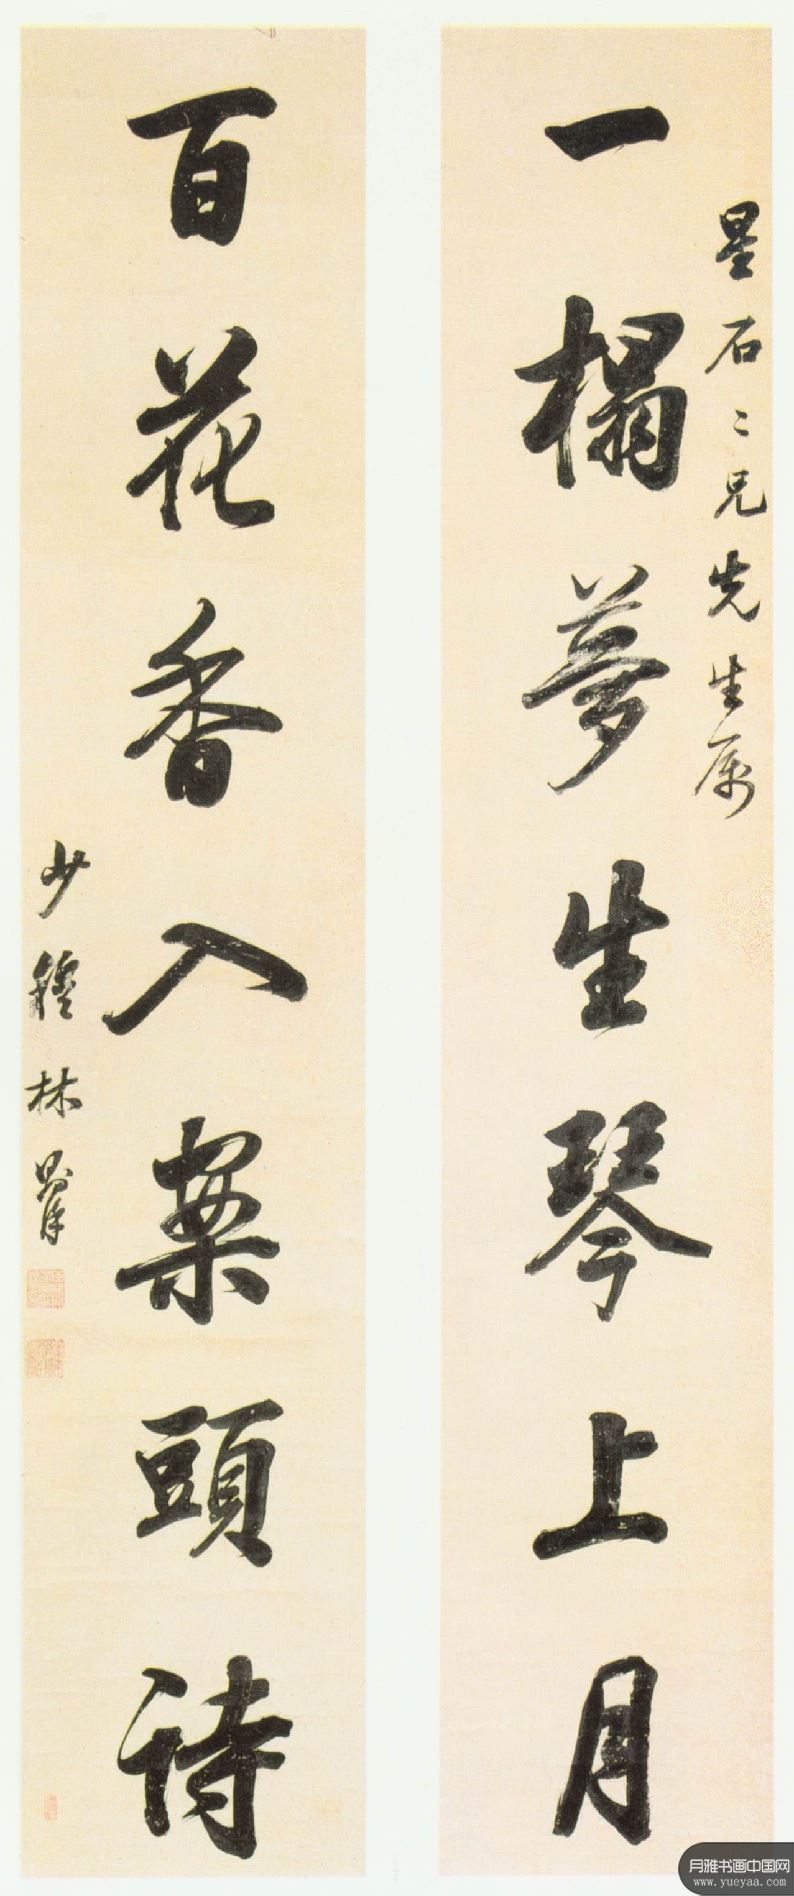 一榻夢生琴上月
星石二兄先生属
百花香入案頭詩
少穆林則徐
月雅书画中国网
www.yueyaa.com